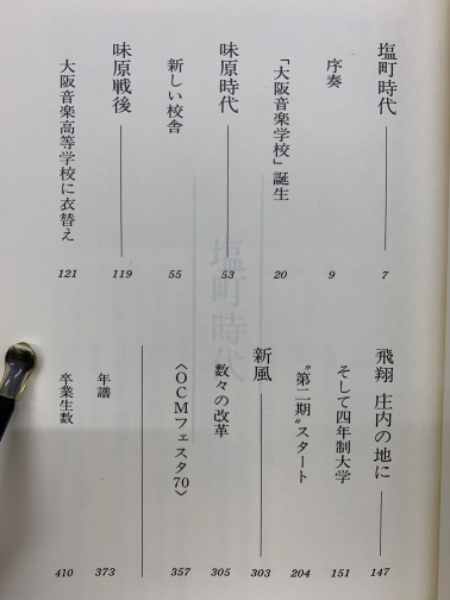 塩町時代 7
序奏 9
「大阪音楽学校」誕生 20
味原時代 53
新しい校舎 55
味原戦後 119
大阪音楽高等学校に衣替え 121
飛翔 庄内の地に 147
そして四年制大学 151
〝第二期〟スタート 204
新風 303
数々の改革 305
〈OCMフェスタ70〉 357
年譜 373
卒業生数 410
塩町時代